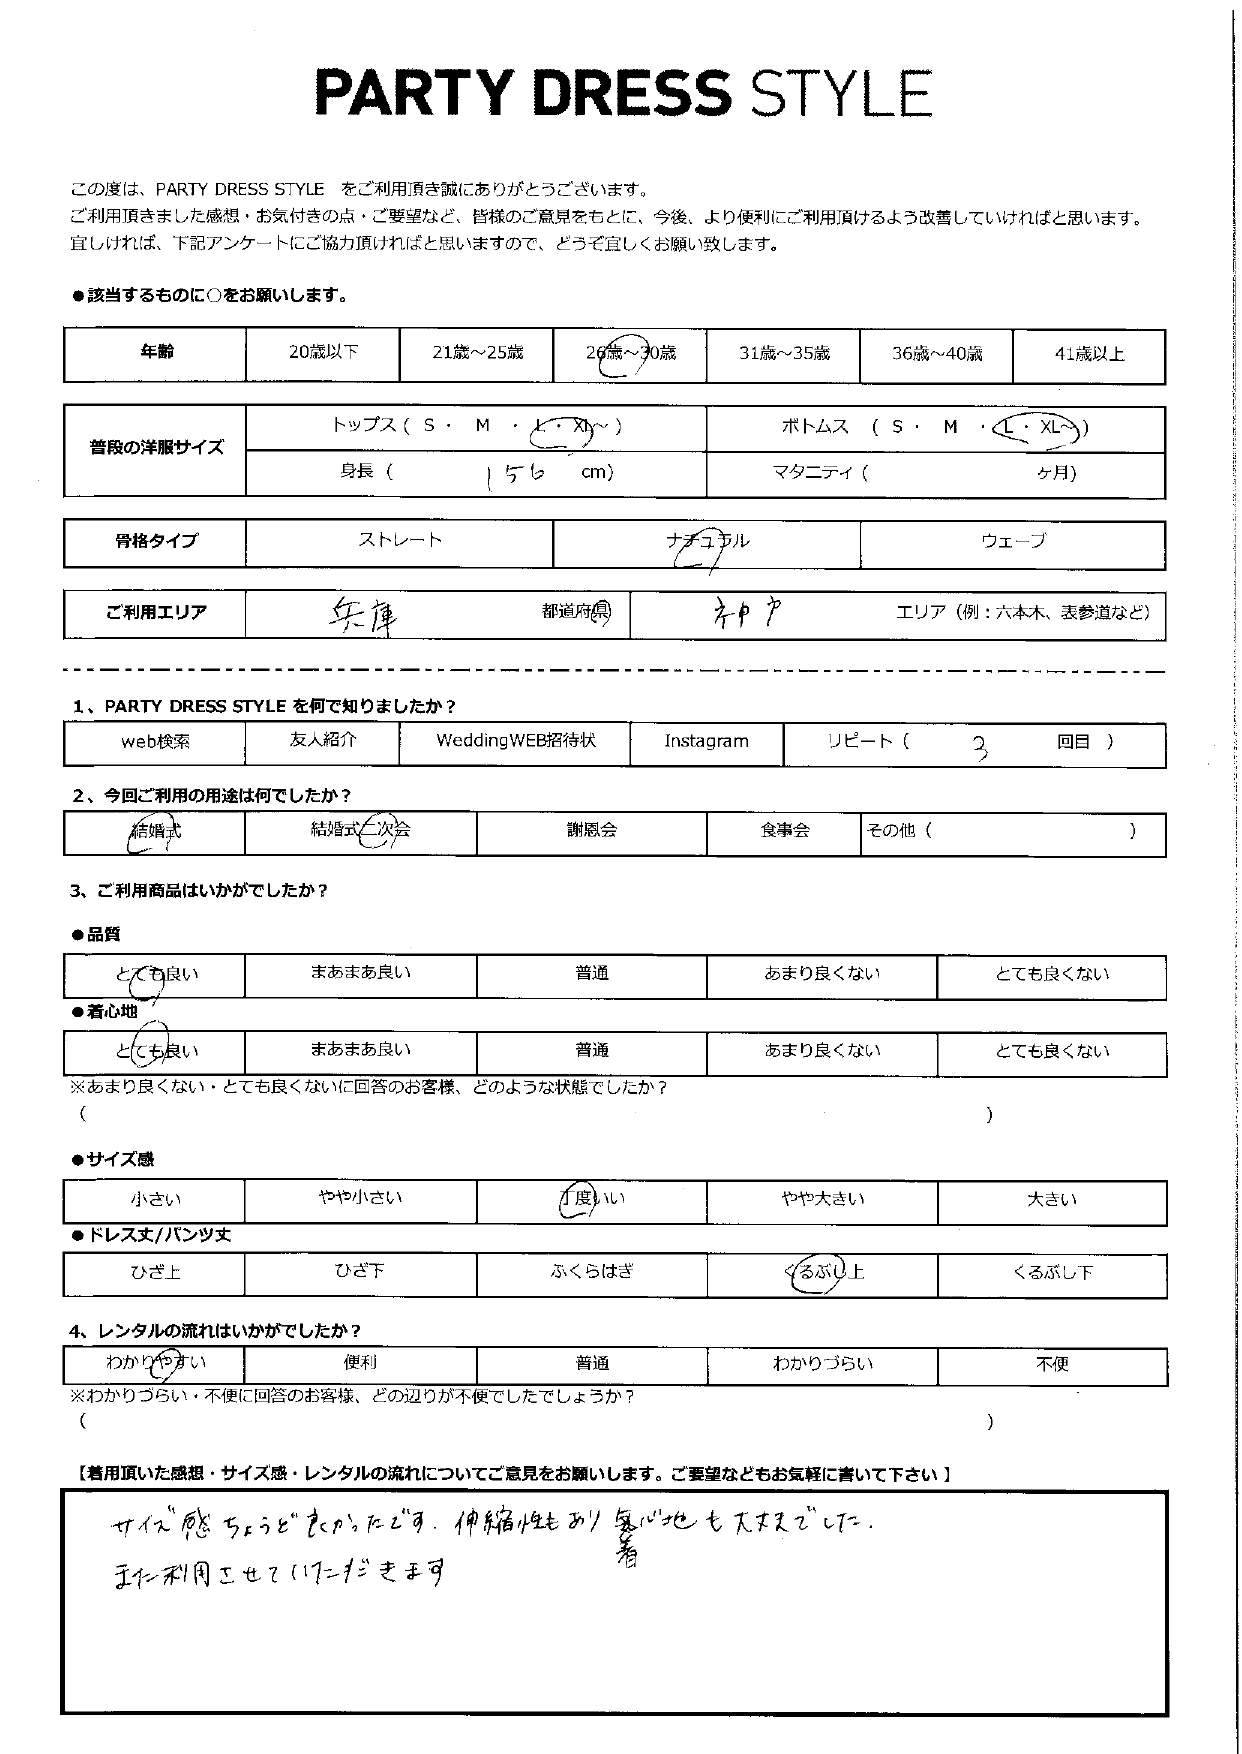 PARTY DRESS STYLE
この度は、PARTY DRESS STYLE をご利用頂き誠にありがとうございます。
ご利用頂きました感想・お気付きの点・ご要望など、皆様のご意見をもとに、今後、より便利にご利用頂けるよう改善していければと思います。
宜しければ、下記アンケートにご協力頂ければと思いますので、どうぞ宜しくお願い致します。
●該当するものに○をお願いします。
年齢 20歳以下 21歳～25歳 26歳～30歳 31歳～35歳 36歳～40歳 41歳以上
普段の洋服サイズ トップス ( S ・ M ・ L ・ XL～ ) ボトムス ( S ・ M ・ L ・ XL～ )
身長 ( 156 cm) マタニティ ( ヶ月)
骨格タイプ ストレート ナチュラル ウェーブ
ご利用エリア 兵庫 都道府県 神戸 エリア（例：六本木、表参道など）
1、PARTY DRESS STYLE を何で知りましたか？
web検索 友人紹介 WeddingWEB招待状 Instagram リピート ( 3 回目 )
2、今回ご利用の用途は何でしたか？
結婚式 結婚式二次会 謝恩会 食事会 その他 ( )
3、ご利用商品はいかがでしたか？
●品質
とても良い まあまあ良い 普通 あまり良くない とても良くない
●着心地
とても良い まあまあ良い 普通 あまり良くない とても良くない
※あまり良くない・とても良くないに回答のお客様、どのような状態でしたか？
( )
●サイズ感
小さい やや小さい 丁度いい やや大きい 大きい
●ドレス丈/パンツ丈
ひざ上 ひざ下 ふくらはぎ くるぶし上 くるぶし下
4、レンタルの流れはいかがでしたか？
わかりやすい 便利 普通 わかりづらい 不便
※わかりづらい・不便に回答のお客様、どの辺りが不便でしたでしょうか？
( )
【着用頂いた感想・サイズ感・レンタルの流れについてご意見をお願いします。ご要望などもお気軽に書いて下さい 】
サイズ感ちょうど良かったです. 伸縮性もあり 心地も大丈夫でした.
着
また利用させていただきます